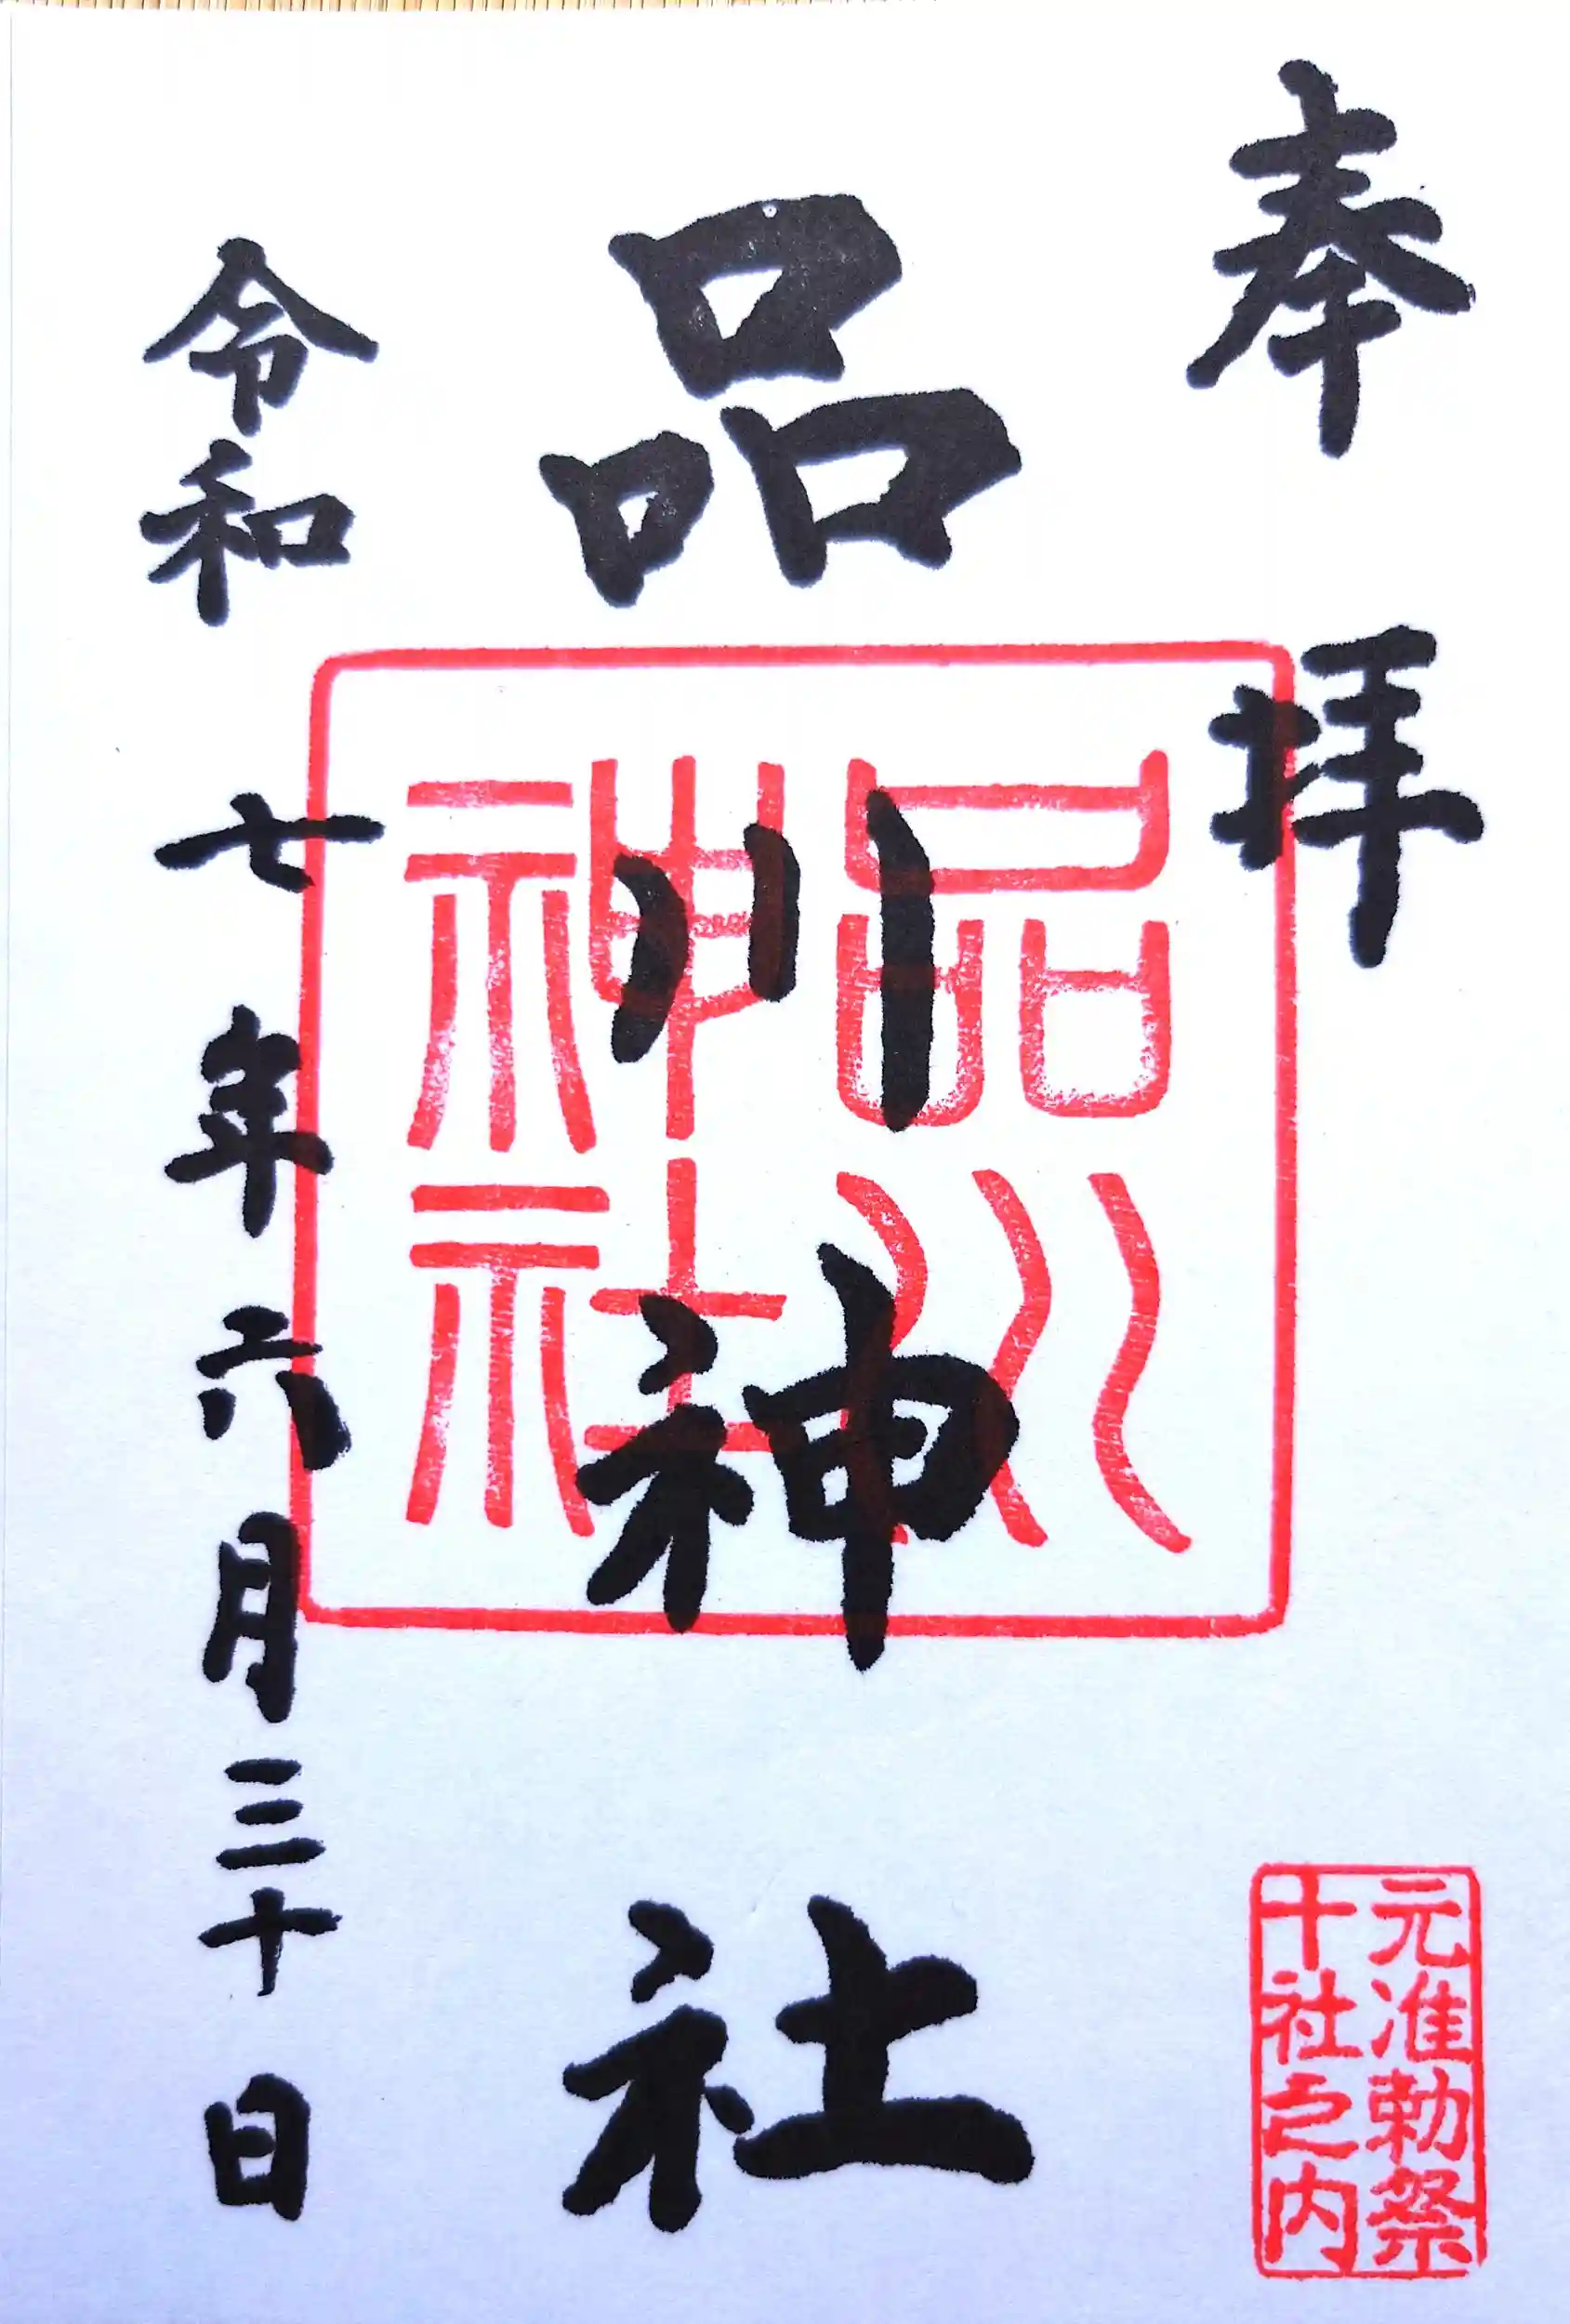 奉拝
元准勅祭
十社之内
品川神社
品川
神社
令和七年六月三十日